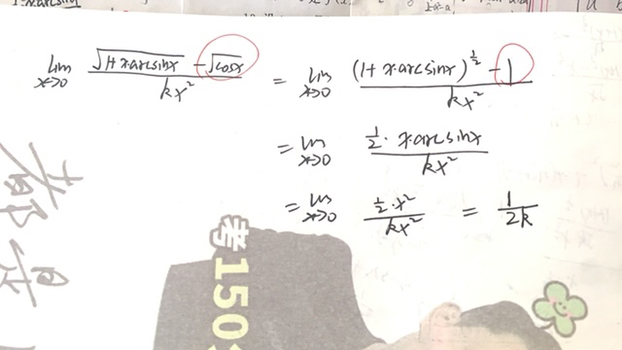 lim x→0 (√(1+x·arcsinx) − √cosx) / kx² = lim x→0 ((1+x·arcsinx)^½ − 1) / kx²
= lim x→0 (½·x·arcsinx) / kx²
= lim x→0 (½·x²) / kx² = 1/2k
考150